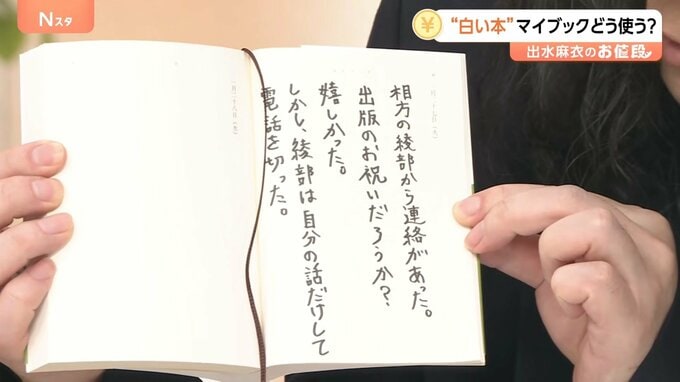 Nスタ
“白い本”マイブックどう使う?
出水麻衣のお値段
相方の綾部から連絡があった。
出版のお祝いだろうか?
嬉しかった。
しかし、綾部は自分の話だけして
電話を切った。